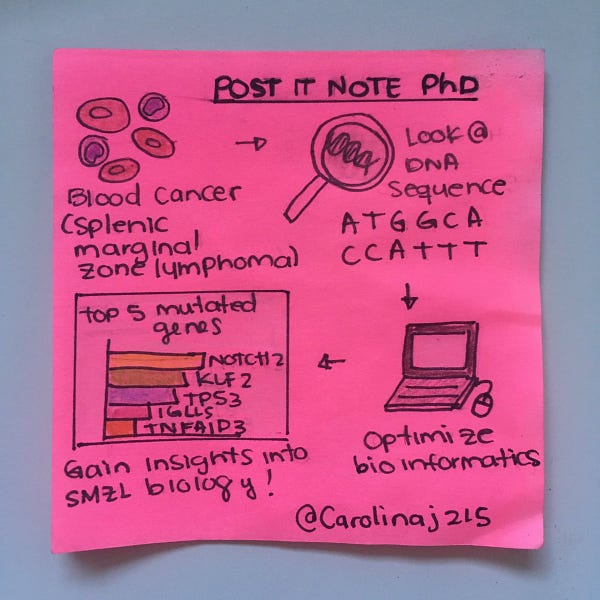 POST IT NOTE PhD
Blood Cancer
(Splenic
marginal
zone lymphoma)
Look @
DNA
Sequence
ATGGCA
CCATTT
Optimize
bioinformatics
Top 5 mutated
genes
NOTCH2
KLF2
TP53
IGLL5
TNFAIP3
Gain insights into
SMZL biology!
@Carolinaj215